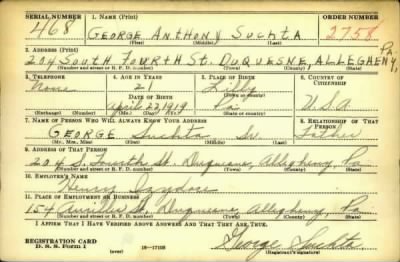 SERIAL NUMBER 1. NAME (Print) ORDER NUMBER
468 GEORGE ANTHONY SUCHTA 2758
(First) (Middle) (Last)
2. ADDRESS (Print)
204 SOUTH FOURTH ST. DUQUESNE, ALLEGHENY, Pa.
(Number and street or R. F. D. number) (Town) (County) (State)
3. TELEPHONE 4. AGE IN YEARS 5. PLACE OF BIRTH 6. COUNTRY OF CITIZENSHIP
None 21 Lilly
DATE OF BIRTH
April 23, 1919 Pa U.S.A
(Exchange) (No.) (Mo.) (Day) (Yr.) (State or country)
7. NAME OF PERSON WHO WILL ALWAYS KNOW YOUR ADDRESS 8. RELATIONSHIP OF THAT PERSON
George Suchta Sr Father
(Mr., Mrs., Miss) (First) (Middle) (Last)
9. ADDRESS OF THAT PERSON
204 S. Fourth St. Duquesne, Allegheny, Pa
(Number and street or R. F. D. number) (Town) (County) (State)
10. EMPLOYER'S NAME
Henry
11. PLACE OF EMPLOYMENT OR BUSINESS
154 St. Duquesne Allegheny, Pa
(Number and street or R. F. D. number) (Town) (County) (State)
I AFFIRM THAT I HAVE VERIFIED ABOVE ANSWERS AND THAT THEY ARE TRUE.
REGISTRATION CARD
D. S. S. Form 1 (over) 16—17105 George Suchta
(Registrant's signature)